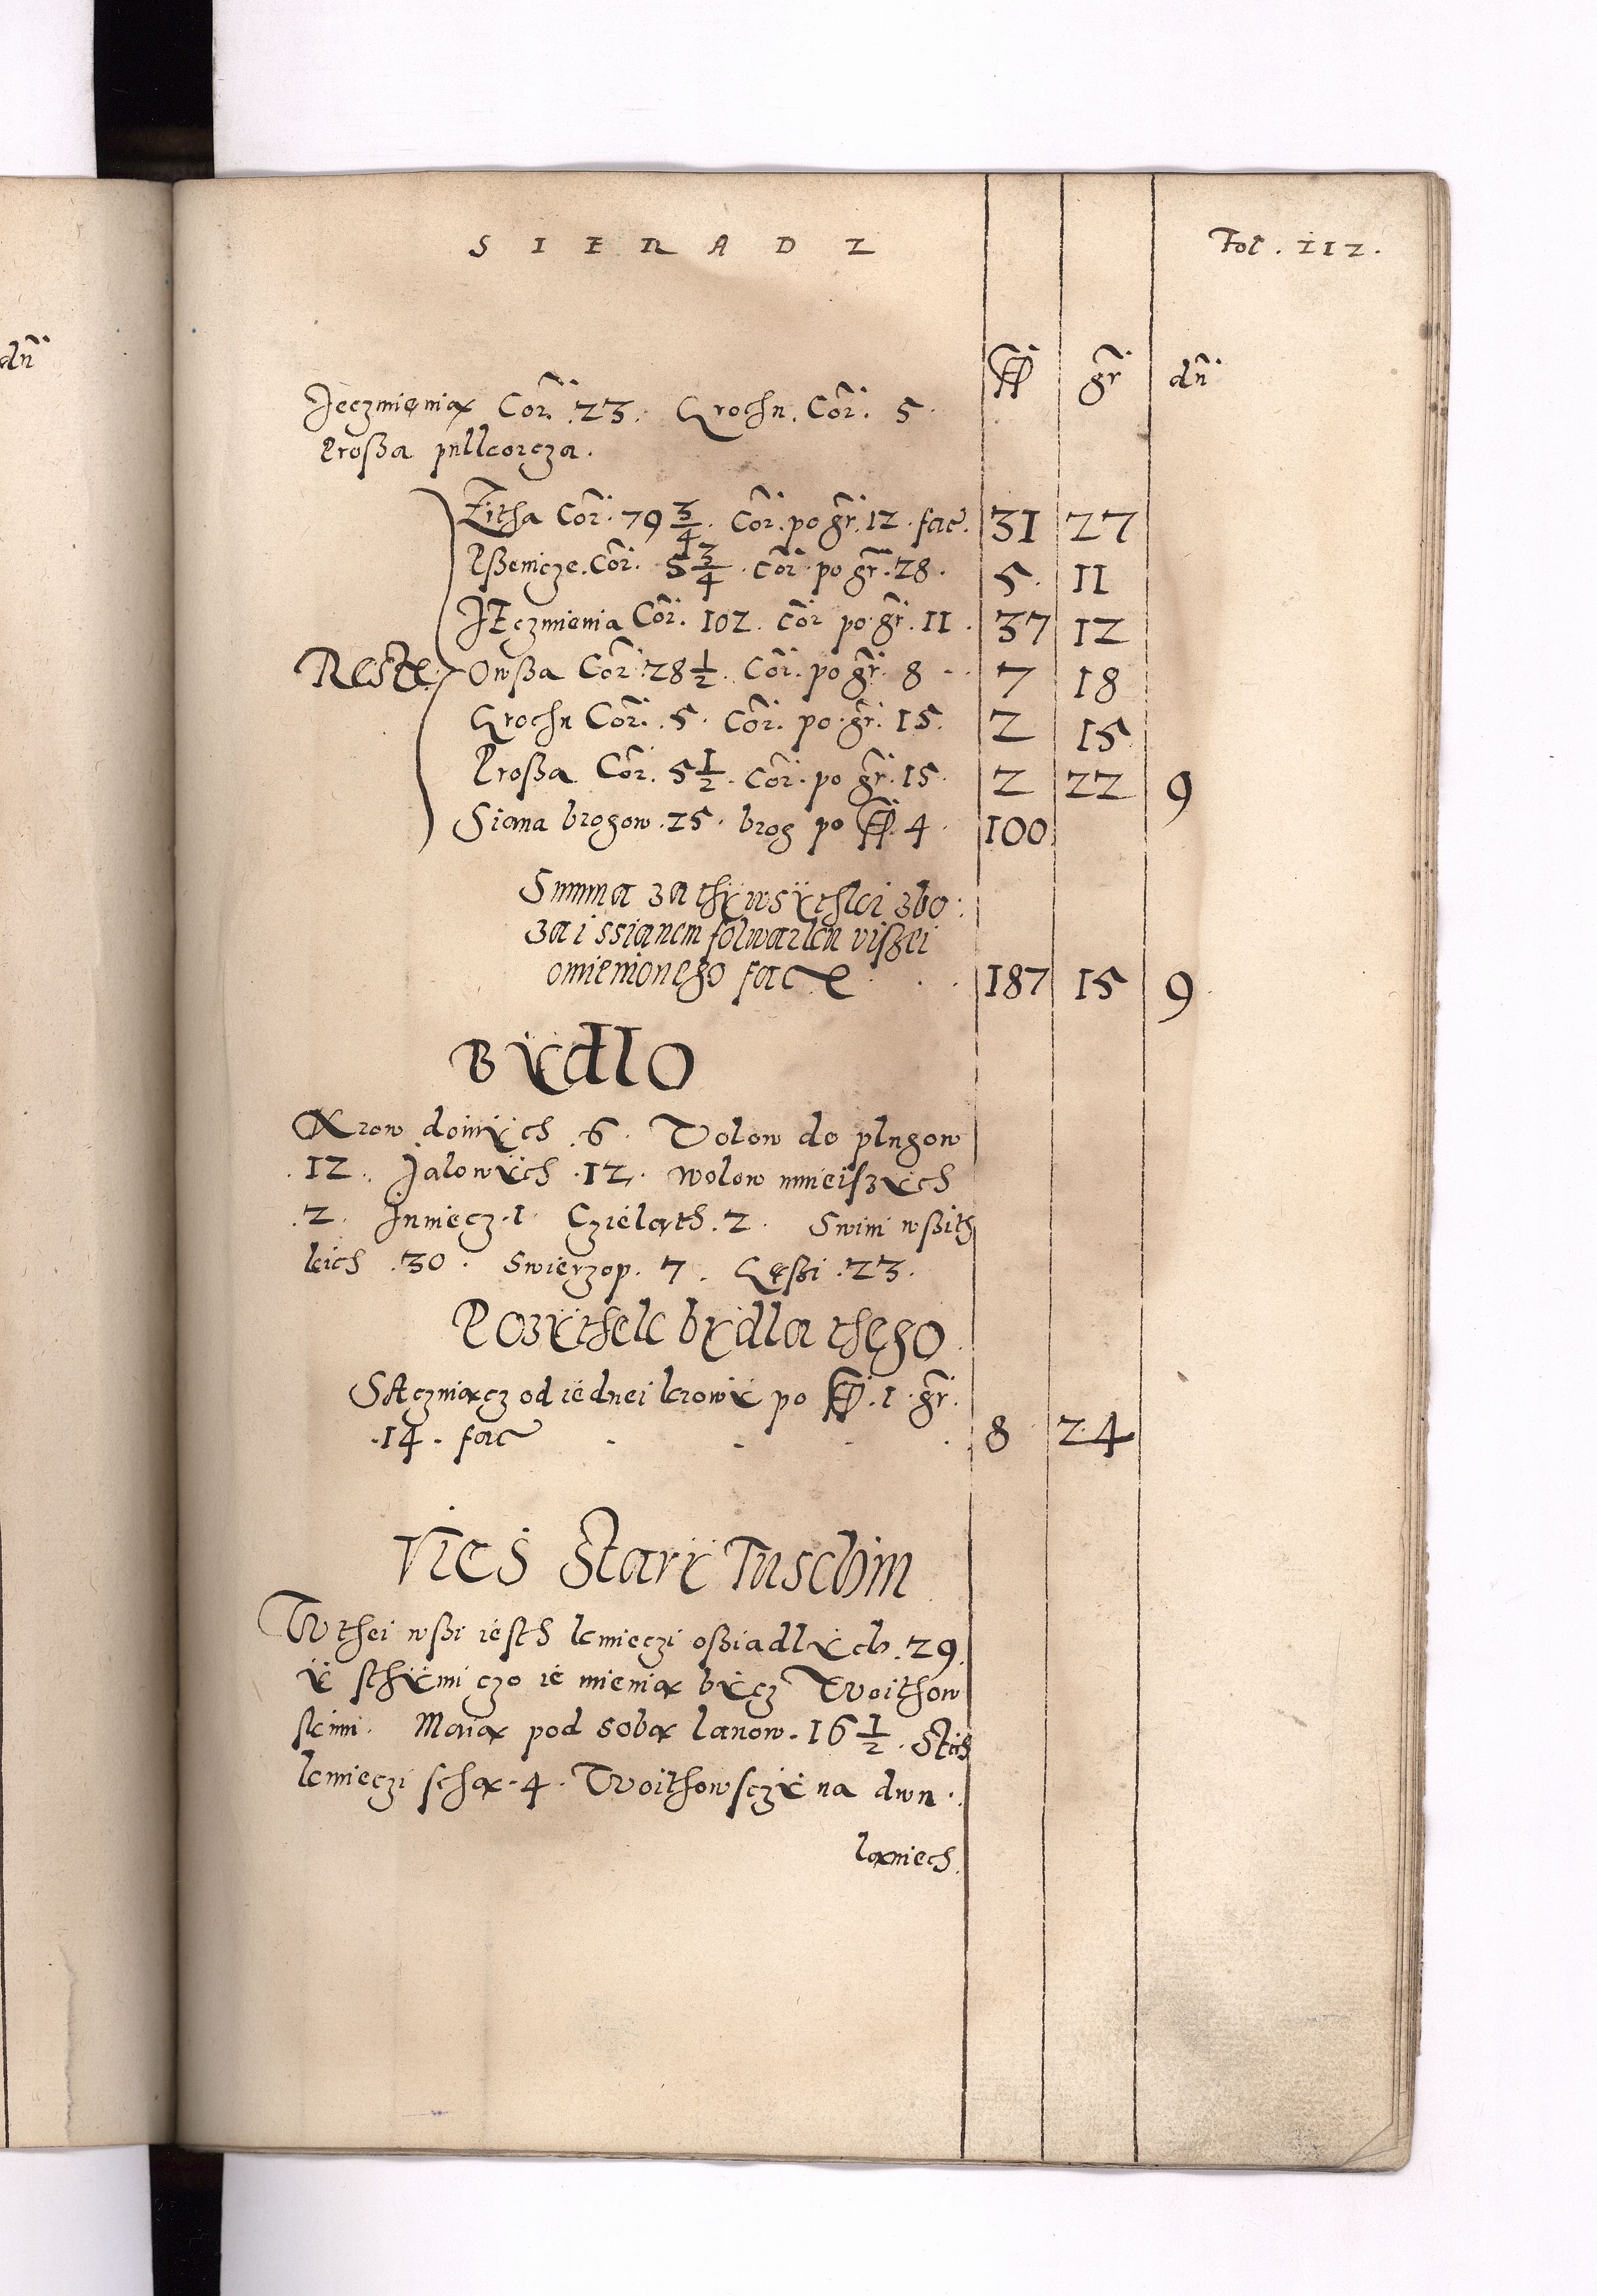 dñ
SIERADZ
Fol. 112.
fl gr dn
Jeczmienią Cor. 23. Grochu. Cor. 5.
Proßa pullcorcza.
Zitha Cor. 79 3/4. Cor. po gr. 12. fac. 31 27
Pßenicze. Cor. 5 3/4. Cor. po gr. 28. 5. 11
JEczmienia Cor. 102. Cor po gr. 11. 37 12
Reste Owßa Cor. 28 1/2. Cor. po gr. 8 - . 7 18
Grochu Cor. 5. Cor. po. gr. 15. 2 15
Proßa Cor. 5 1/2. Cor. po gr. 15. 2 22 9
Siana brogow. 25. brog po fl. 4. 100
Summa za thÿ wsÿthki zbo:
za i ssianem folwarku vißei
omienionego fac 187 15 9
BÿdlO
Krow doinÿch .6. Volow do plugow
.12. Jalowÿch .12. wolow mneiszÿch
.2. Juniecz .1. Czieląth .2. Swini wßith
kich .30. Swierzop. 7. Gęßi .23.
POzÿthek bÿdla thego
StAczniącz od iednei krowÿ po fl. 1. gr.
.14. fac - - - . 8 24
VieS Starÿ Tuschin
W thei wßi iesth kmieczi oßiadlÿch. 29.
ÿ sthÿmi czo ie mienią bÿcz Woithow
skimi. Maią pod sobą lanow. 16 1/2. Stich
kmieczi sthą. 4. Woithowsczÿ na dwu.
laniech.